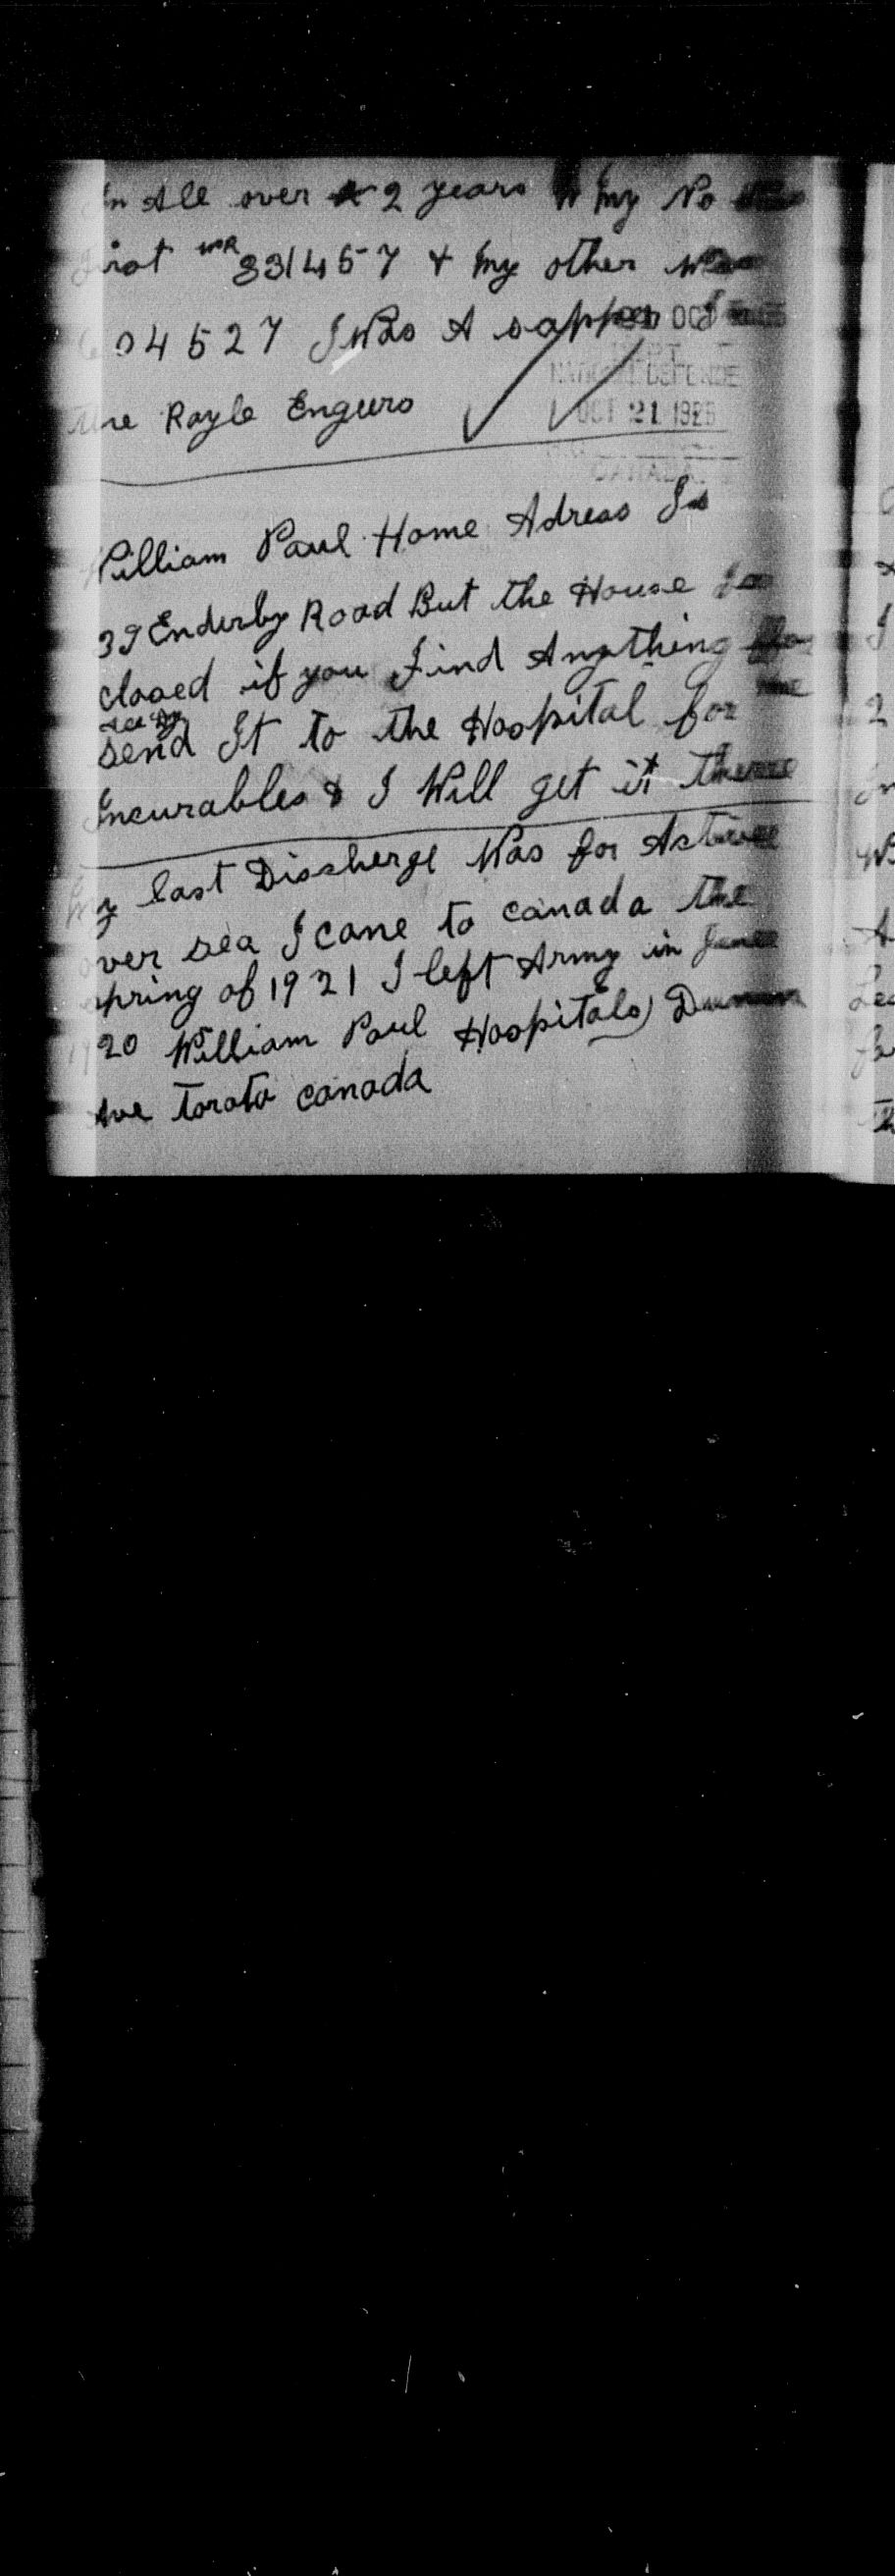 In All over 2 years my No
first WR 331457 & my other was
604527 I Was A sapper
OCT
NATIONAL DEFENCE
the Royle Engurs
OCT 21 1926
CANADA
William Paul Home Adress Is
39 Enderby Road But the House Is
closed if you Find Anything
send It to the Hospital for the
Incurables & I Will get it there
My last Discherge Was for Active
over sea I cane to canada the
spring of 1921 I left Army in June
1920 William Paul Hospitals Dunn
Ave Toroto canada